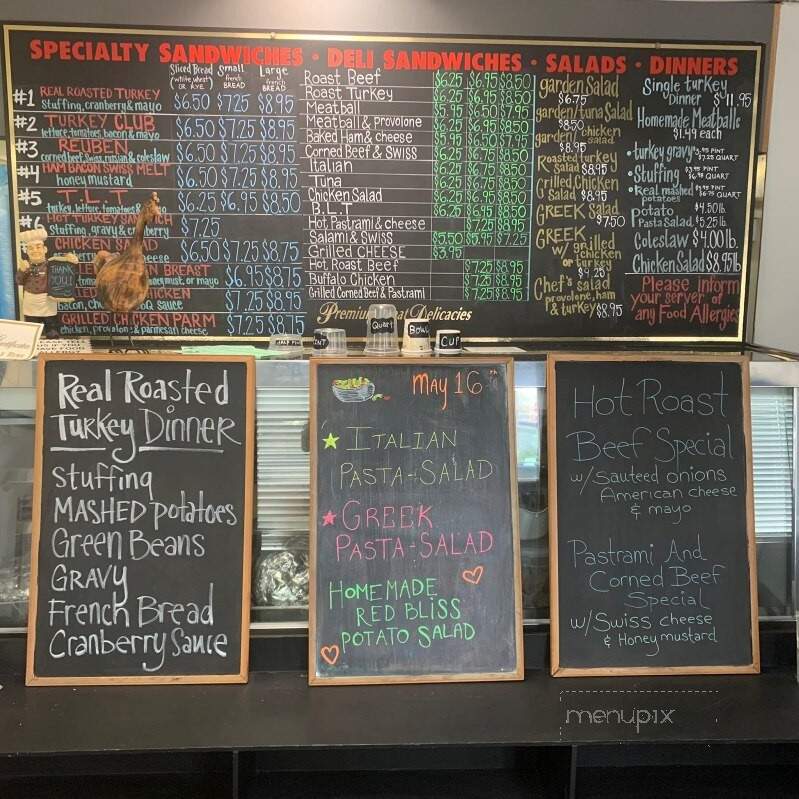 SPECIALTY SANDWICHES · DELI SANDWICHES · SALADS · DINNERS
Sliced Bread (white, wheat OR RYE) Small french BREAD Large french BREAD
#1 REAL ROASTED TURKEY
stuffing, cranberry & mayo $6.50 $7.25 $8.95
#2 TURKEY CLUB
lettuce, tomatoes, bacon & mayo $6.50 $7.25 $8.95
#3 REUBEN
corned beef, swiss, russian & coleslaw $6.50 $7.25 $8.95
#4 HAM BACON SWISS MELT
honey mustard $6.50 $7.25 $8.95
#5 T.L.T.
turkey, lettuce, tomatoes & $6.25 $6.95 $8.50
#6 HOT TURKEY SANDWICH
stuffing, gravy & cranberry $7.25
CHICKEN SALAD
cheese $6.50 $7.25 $8.75
BREAST
honey must. or mayo $6.95 $8.75
CHICKEN
bacon, BQ sauce $7.25 $8.95
GRILLED CHICKEN PARM
chicken, provolone & parmesan cheese $7.25 $8.75
Roast Beef $6.25 $6.95 $8.50
Roast Turkey $6.25 $6.95 $8.50
Meatball $5.15 $6.50 $7.95
Meatball & provolone $6.95 $7.95
Baked Ham & cheese $5.95 $6.50 $7.95
Corned Beef & Swiss $6.25 $6.75 $8.50
Italian $6.25 $6.75 $8.50
Tuna $6.25 $6.95 $8.50
Chicken Salad $6.25 $6.95 $8.50
B.L.T. $6.25 $6.95 $8.50
Hot Pastrami & cheese $7.25 $8.95
Salami & Swiss $5.50 $5.95 $7.25
Grilled CHEESE $3.95
Hot Roast Beef $7.25 $8.95
Buffalo Chicken $7.25 $8.95
Grilled Corned Beef & Pastrami $7.25 $8.95
Premium Meat Delicacies
garden Salad
$6.75
garden/tuna Salad
$8.50
garden/chicken salad
$8.95
Roasted turkey
Salad $8.95
Grilled Chicken
Salad $8.95
GREEK Salad
$7.50
GREEK
w/ grilled
chicken
or turkey
$9.25
Chef's salad
provolone, ham
& turkey $8.95
Single turkey
Dinner $11.95
Homemade Meatballs
$1.49 each
• turkey gravy $3.95 PINT $7.25 QUART
• Stuffing PINT QUART
• Real mashed potatoes PINT $6.75 QUART
Potato $4.50 lb.
Pasta Salad $5.25 lb
Coleslaw $4.00 lb.
Chicken Salad $8.95 lb
Please inform
your server of
any Food Allergies
THANK
YOU!
Quart
BOWL
CUP
Real Roasted
Turkey Dinner
stuffing
MASHED potatoes
Green Beans
GRAVY
French Bread
Cranberry Sauce
May 16th
ITALIAN
PASTA-SALAD
GREEK
PASTA-SALAD
HOMEMADE
RED BLISS
POTATO SALAD
Hot Roast
Beef Special
w/Sauteed onions
American cheese
& mayo
Pastrami And
Corned Beef
Special
w/Swiss cheese
& Honey mustard
menupix